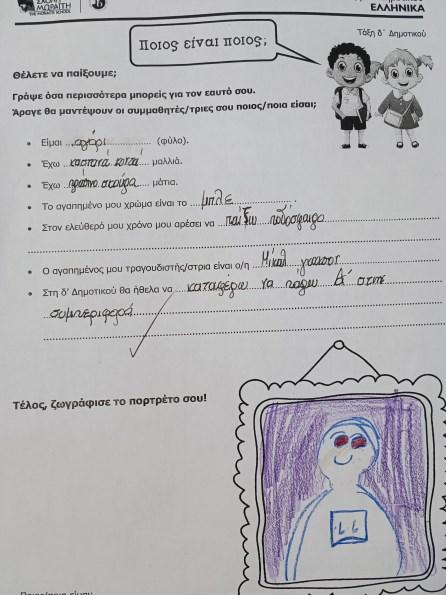 ΣΧΟΛΗ
ΜΩΡΑΪΤΗ
THE MORAITIS SCHOOL
ΕΛΛΗΝΙΚΑ
Τάξη δ΄ Δημοτικού
Ποιος είναι ποιος;
Θέλετε να παίξουμε;
Γράψε όσα περισσότερα μπορείς για τον εαυτό σου.
Άραγε θα μαντέψουν οι συμμαθητές/τριες σου ποιος/ποια είσαι;
• Είμαι αγόρι (φύλο).
• Έχω καστανά κοντά μαλλιά.
• Έχω πράσινα σκούρα μάτια.
• Το αγαπημένο μου χρώμα είναι το μπλε.
• Στον ελεύθερό μου χρόνο μου αρέσει να παίζω ποδόσφαιρο
• Ο αγαπημένος μου τραγουδιστής/στρια είναι ο/η Μάικλ
• Στη δ΄ Δημοτικού θα ήθελα να καταφέρω να πάρω Α΄ στην
συμπεριφορά
Τέλος, ζωγράφισε το πορτρέτο σου!